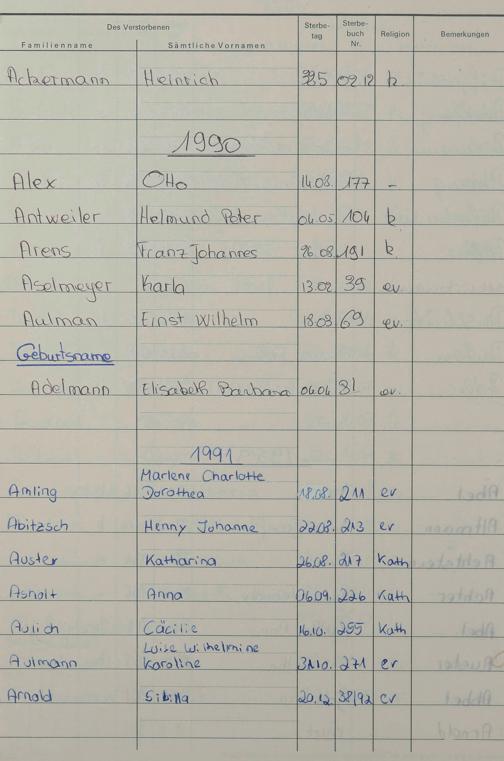 Des Verstorbenen
Familienname Sämtliche Vornamen Sterbe-tag Sterbe-buch Nr. Religion Bemerkungen
Ackermann Heinrich k
1990
Alex Otto 14.08. 177 -
Antweiler Helmund Peter 04.05 104 k
Arens Franz Johannes 26.08. 191 k
Aselmeyer Karla 13.02 39 ev.
Aulman Ernst Wilhelm 18.03 69 ev.
Geburtsname
Adelmann Elisabeth Barbara 04.04 81 ev.
1991
Marlene Charlotte
Amling Dorothea 18.08. 211 ev
Abitzsch Henny Johanne 22.08. 213 ev
Auster Katharina 26.08. 217 Kath
Asholt Anna 06.09. 226 Kath
Aulich Cäcilie 16.10. 255 Kath
Luise Wilhelmine
Aulmann Karoline 31.10. 271 ev
Arnold Sibilla 20.12 38/92 ev